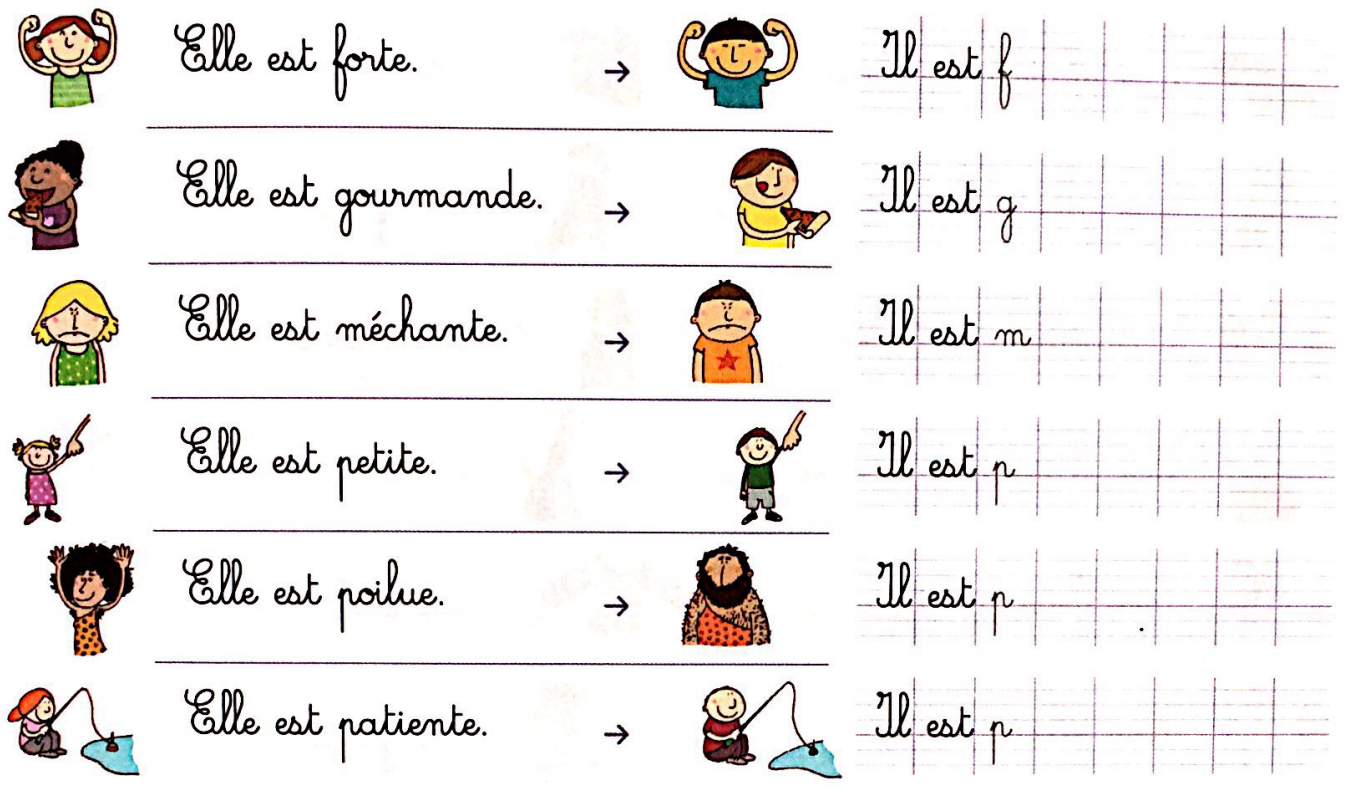 Elle est forte. → Il est f
Elle est gourmande. → Il est g
Elle est méchante. → Il est m
Elle est petite. → Il est p
Elle est poilue. → Il est p
Elle est patiente. → Il est p